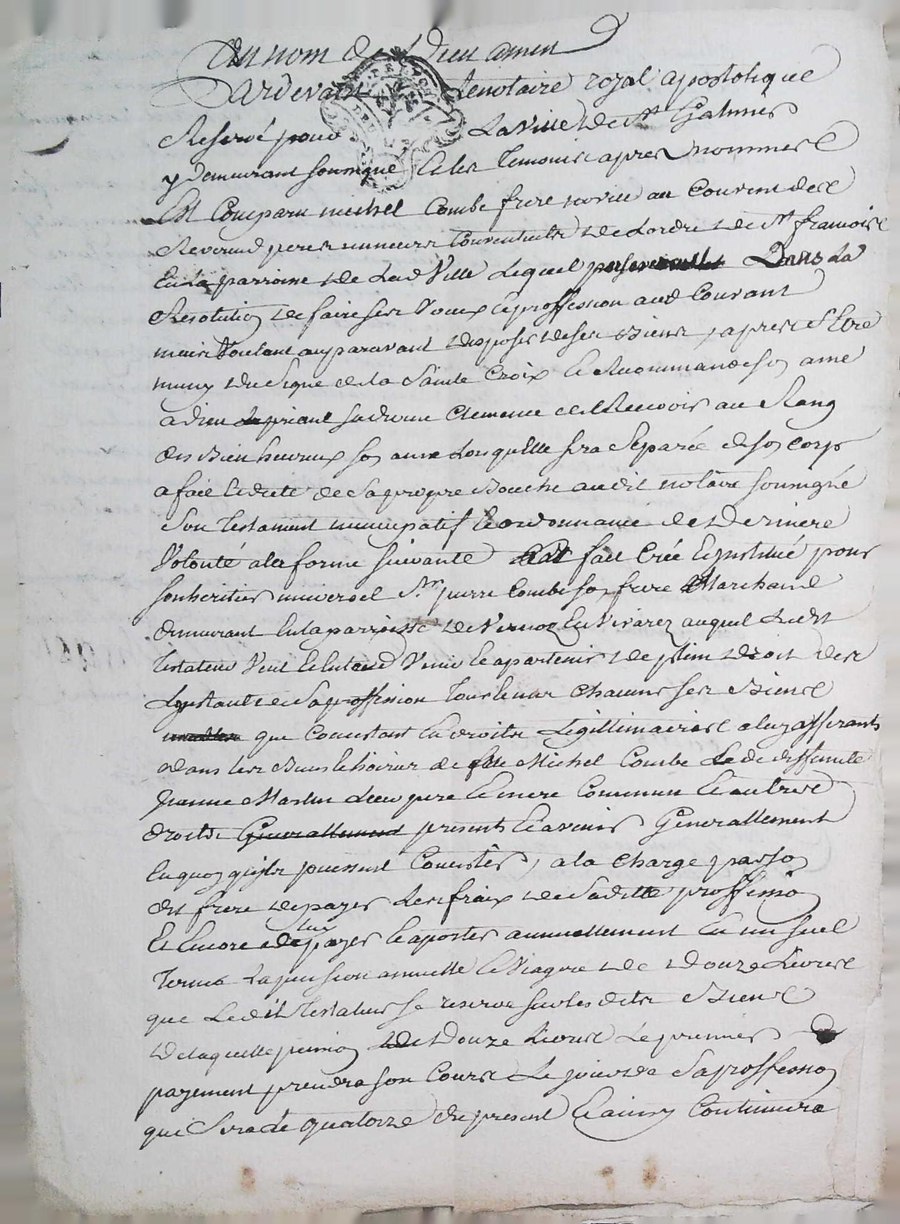 Au nom de Dieu amen
Pardevant le notaire royal apostolique
Reservé pour La Ville de St Galmier
y demeurant soussigné et les temoins apres nommes
Est comparu michel Combe frere novice au Couvent des
Reverend peres mineurs Conventuels de Lordre de St francois
en la parroisse de Lad Ville Lequel Dans La
Resolution de faire ses Voeux et proffession aud Couvant
mais Voulant auparavant disposer de ses Biens, apres s'Etre
muny du signe de la Sainte Croix et Recommandé son ame
a dieu priant sa divine Clemence de la Recevoir au Rang
des Bien heureux son ame Lorquelle sera separée de son corps
a fait et dicté de sa propre Bouche audit notaire soussigné
Son testament nuncupatif et ordonnance de derniere
Volonté a la forme suivante fait créé et institué pour
son heritier universel Sr pierre Combe son frere Marchand
demeurant en la parroisse de Vernoz en Vivarez auquel Ledit
testateur Veut et entend Venir et apartenir de plein droit des
Linstant de sa proffession tous et uns chacuns ses Biens
que Consistant en droits Legitimaires a luy afferants
dans les Biens et hoiries de Michel Combe et de deffunte
Jeanne Martin Leur pere et mere commun et autres
droits Generallement presents et avenir Generallement
en quoy quils puissent Consister, a la charge par son
dit frere de payer Les fraix de Sa ditte proffession
Et Encore de luy payer et aporter annuellement en un seul
Terme La pension annuelle et Viagere de douze Livres
que Ledit testateur se reserve sur lesdits Biens
de laquelle pension de douze Livres Le premier
payement prendra son Cours Le jour de sa proffession
qui sera le quatorze du present Et ainsy Continuera